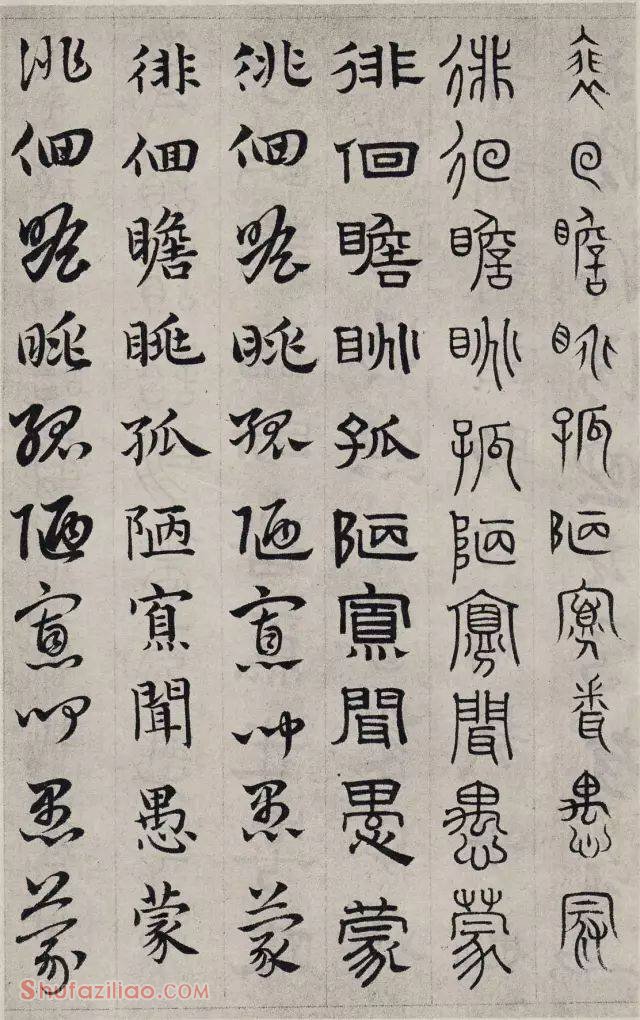 裴回瞻眺孤陋寡聞愚冡
徘徊瞻眺孤陋寡聞愚蒙
徘佪瞻眺孤陋寡聞愚蒙
徘佪瞻眺孤陋寡聞愚蒙
徘佪瞻眺孤陋寡聞愚蒙
徘佪瞻眺孤陋寡聞愚蒙
Shufaziliao.com